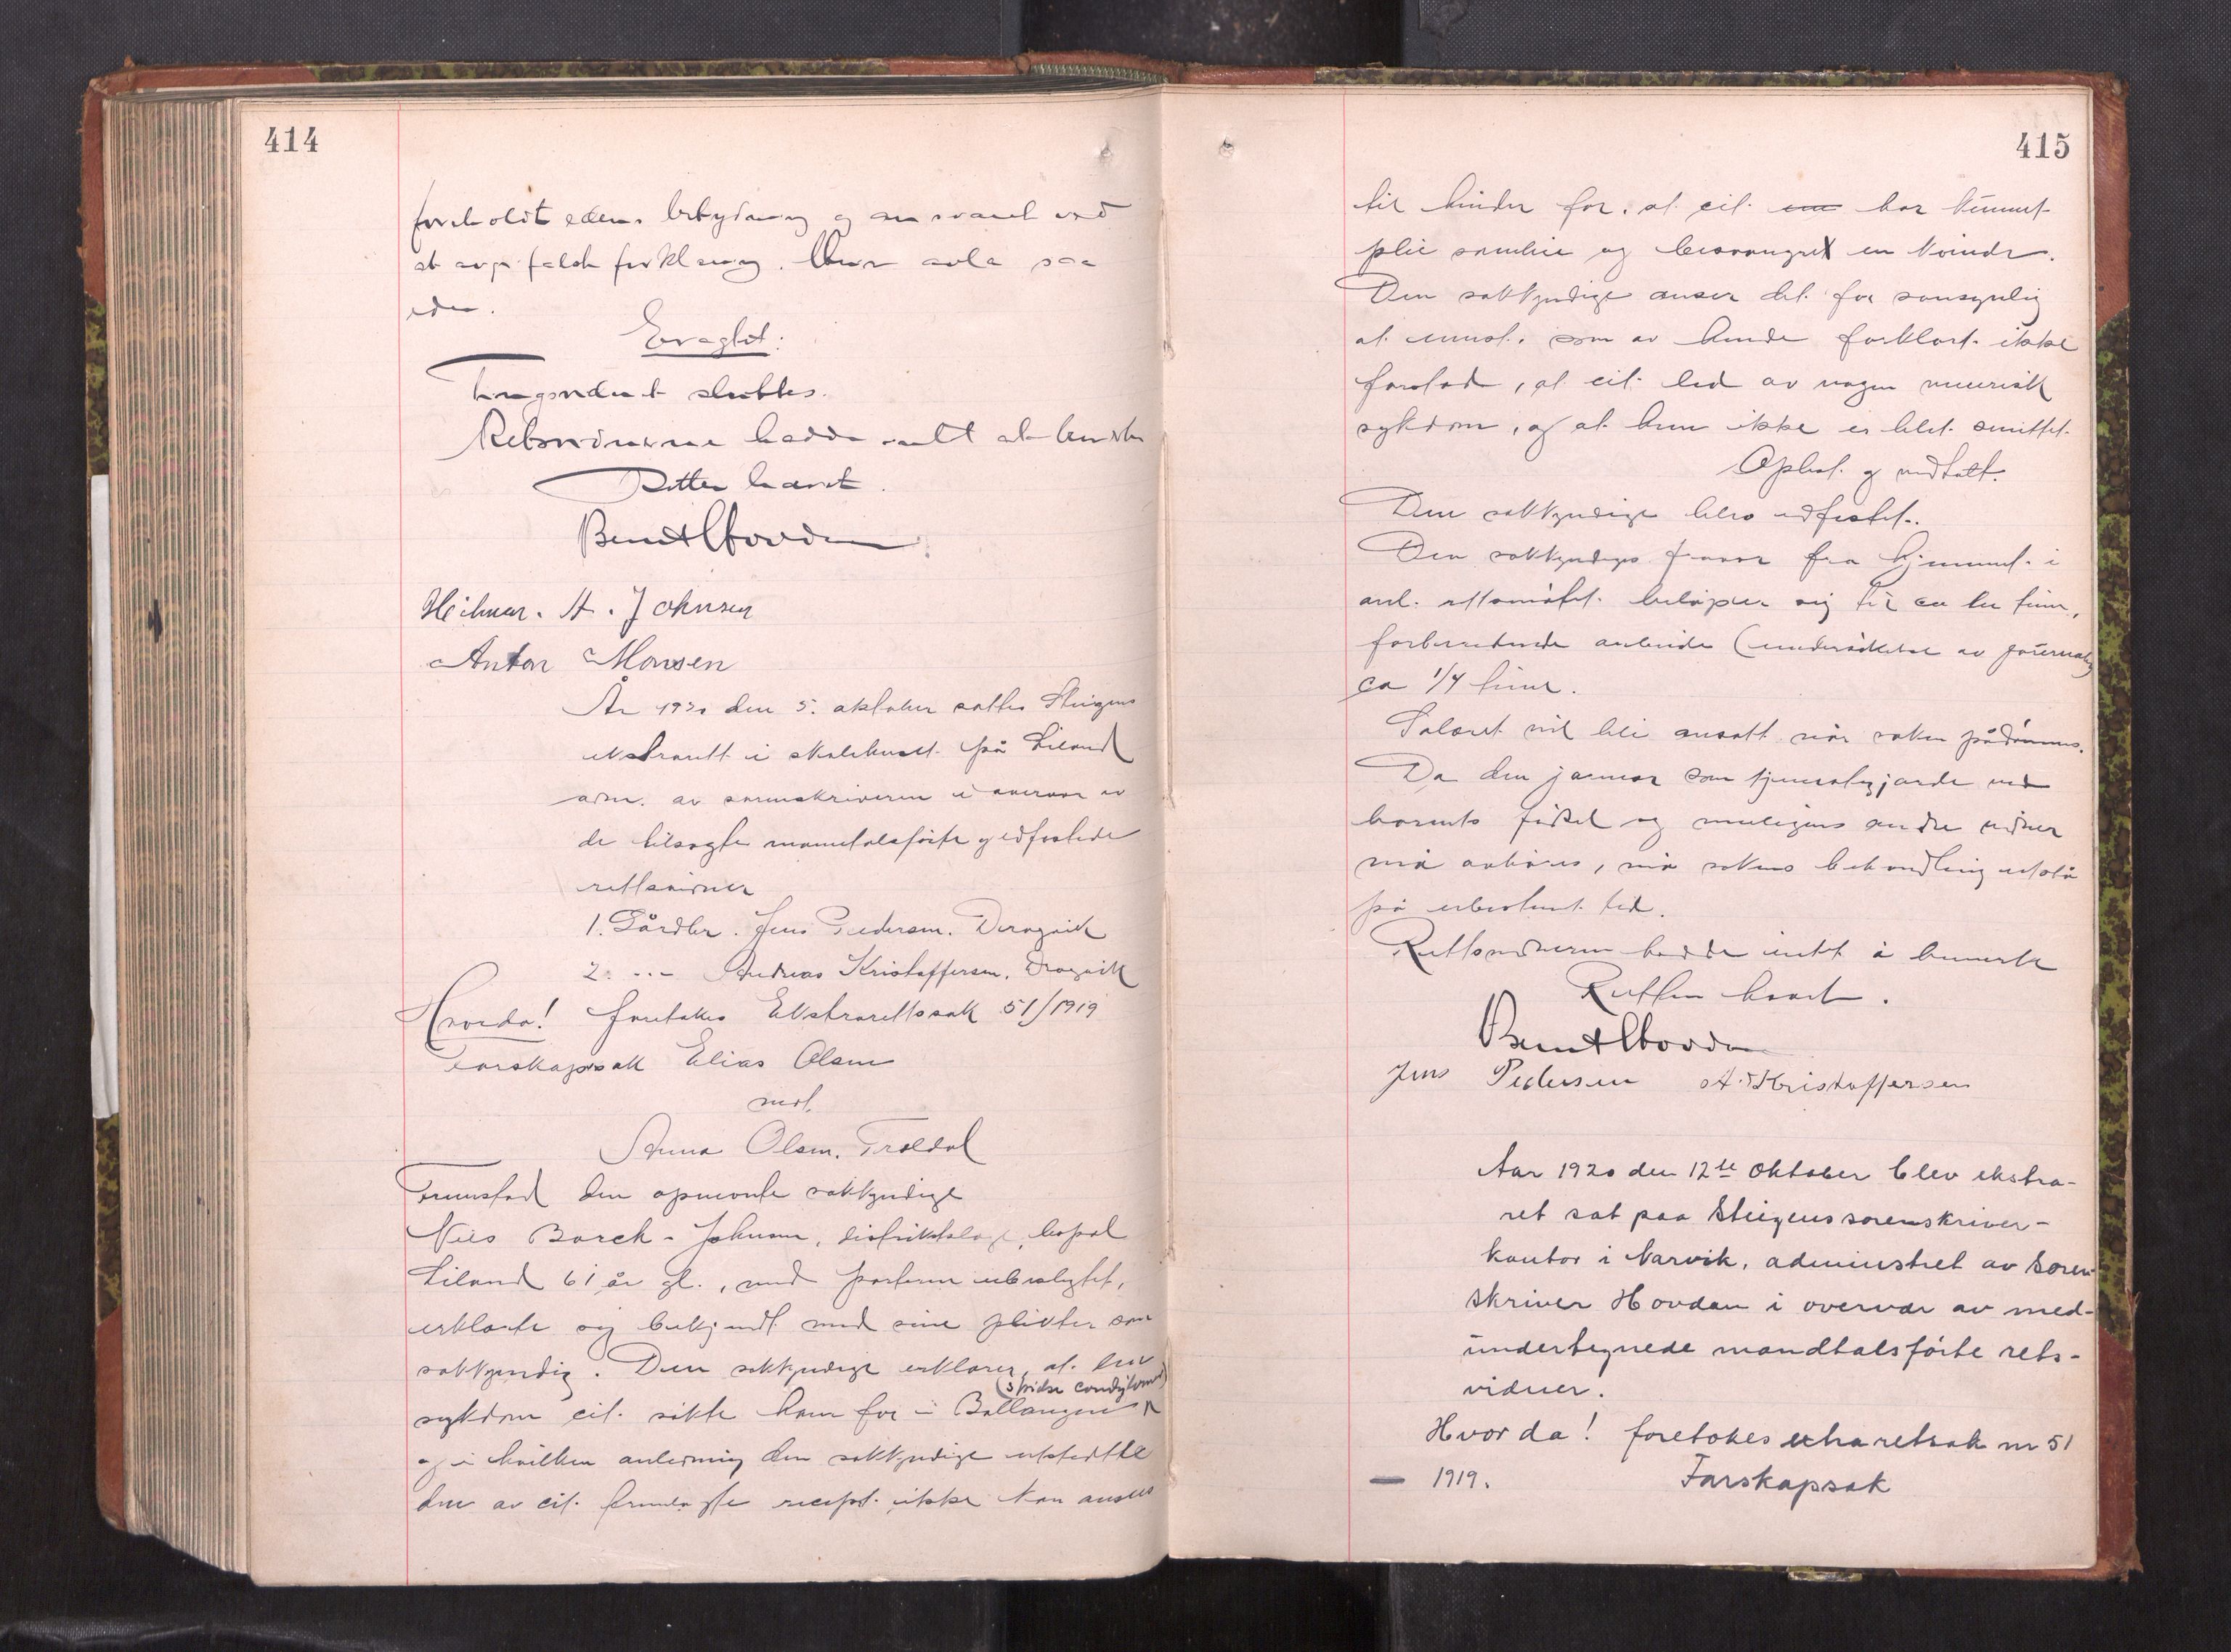 414
foreholdt edens betydning og ansvaret ved
at avgi falsk forklaring. Hun avla saa
eden.
Fraghet:
Tingsvidnet sluttes.
Retsvidnerne hadde intt at bemerke
Retten hævet.
Bernt Hovdan
Heilmar. A. Johnsen
Anton Monsen
År 1920 den 5. oktober sattes Steigens
ekstrarett i skolehuset på Liland
adm. av sorenskriveren i overvær av
de tilsagte manntalsførte og edfestede
rettsvidner
1. Gårdbr. Jens Pedersen. Dragvik
2. -.- Andreas Kristoffersen. Dragvik
Hvorda! foretokes Ekstrarettssak 51/1919
Farskapssak Elias Olsen
mot.
Anna Olsen. Trældal
Fremstod den opnevnte sakkyndige
Nils Borch-Johnsen, distriktslæge, bopæl
Liland 61 år gl., med partene ubeslegtet,
erklærte sig bekjendt med sine plikter som
sakkyndig. Den sakkyndige erklærer, at den
(spidse condylomer)
sykdom cit. søkte ham for i Ballangen
og i hvilken anledning den sakkyndige utstedte
den av cit. fremlagte recept ikke kan ansees
415
til hinder for, at cit. har kunnet
pleie samleie og besvangret en kvinde.
Den sakkyndige anser det for sansynlig
at smst. som av hende forklart ikke
forstod, at cit. led av nogen venerisk
sykdom, og at hun ikke er blet smittet.
Oplest og vedtatt.
Den sakkyndige blev edfestet.
Den sakkyndiges fravær fra hjemmet i
anl. rettsmøtet beløper sig til ca to timer,
forberedende arbeide (undersøkelse av journaler)
ca 1/4 time.
Salæret vil bli ansatt når saken pådømmes.
Da den jormor som tjenestegjorde ved
barnets fødsel og muligens andre vidner
må avhøres, må sakens behandling utstå
på ubestemt tid.
Rettsvidnerne hadde intt å bemerke
Retten hævet.
Bernt Hovdan
Jens Pedersen A. Kristoffersen
Aar 1920 den 12te Oktober blev ekstra-
ret sat paa Steigens sorenskriver-
kontor i Narvik, administret av soren-
skriver Hovdan i overvær av med-
undertegnede mandtalsførte rets-
vidner.
Hvor da! foretokes extraretsak nr 51
— 1919. Farskapsak